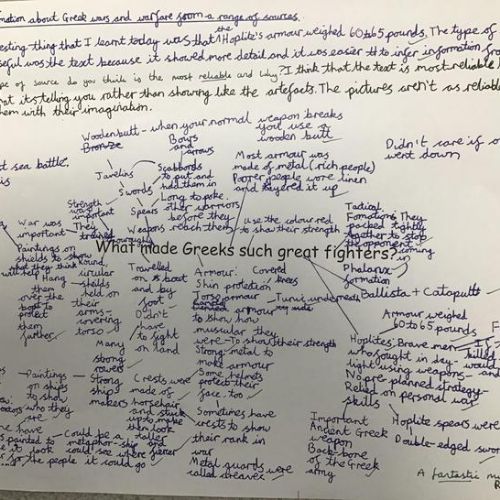 mation about Greek wars and warfare from a range of sources.
esting thing that I learnt today was that the Hoplite's armour weighed 60 to 65 pounds. The type of
seful was the text because it showed more detail and it was easier to infer information from
pe of source do you think is the most reliable and why? I think that the text is most reliable
at it's telling you rather than showing like the artefacts. The pictures aren't as reliable
them with their imagination.
Wooden butt - when your normal weapon breaks
you use a
wooden butt
Bronze
Bows
and
arrows
Didn't care if o
went down
st sea battle.
is
Javelins
Swords
Spears
Scabbords
to put and
hold them in
Long to poke
other warriors
before they
Weapons reach them
Most armour was
made of metal (rich people)
Poorer people wore linen
and layered it up
use the colour red
to show their strength
Tactical
Formations They
packed tightly
together to stop
the opponent
coming
in
Phalanx
formation
War was
important
Strength
was
important
They
trained
thoroughly
What made Greeks such great fighters?
Paintings on
shields to show
what they think
will help
Hang
them
over the
boat to
protect
them
further
Round,
circular
shields
held on
their
arms-
covering
torso
Travelled
in a boat
and by
foot
Didn't
have
to fight
on land
Armour: Covered
knees
Shin protection
Torso armour
Tunic underneath
armour
to show how
muscular they
were - To show their strength
Strong metal to
make armour
Some helmets
protect their
face too
Ballista + Catapult
Armour weighed
60 to 65 pounds
Hoplites: Brave men
who fought in day-
light using weapons
No pre planned strategy-
Relied on personal war
skills
killed
Many
strong
rowers
Strong
ship
makers
Paintings
on ships
to show
who they
are
Crests were
made of
horsehair
and stuck
up to make
them look
taller
fiercer
Could be a
metaphor - ship
could see where
it could go
painted to
make it look
Sometimes have
crests to show
their rank in
war
Metal guards were
called greaves
Important
Ancient Greek
weapon
Back bone
of the Greek
army
Hoplite spears were
Double-edged sword
A fantastic